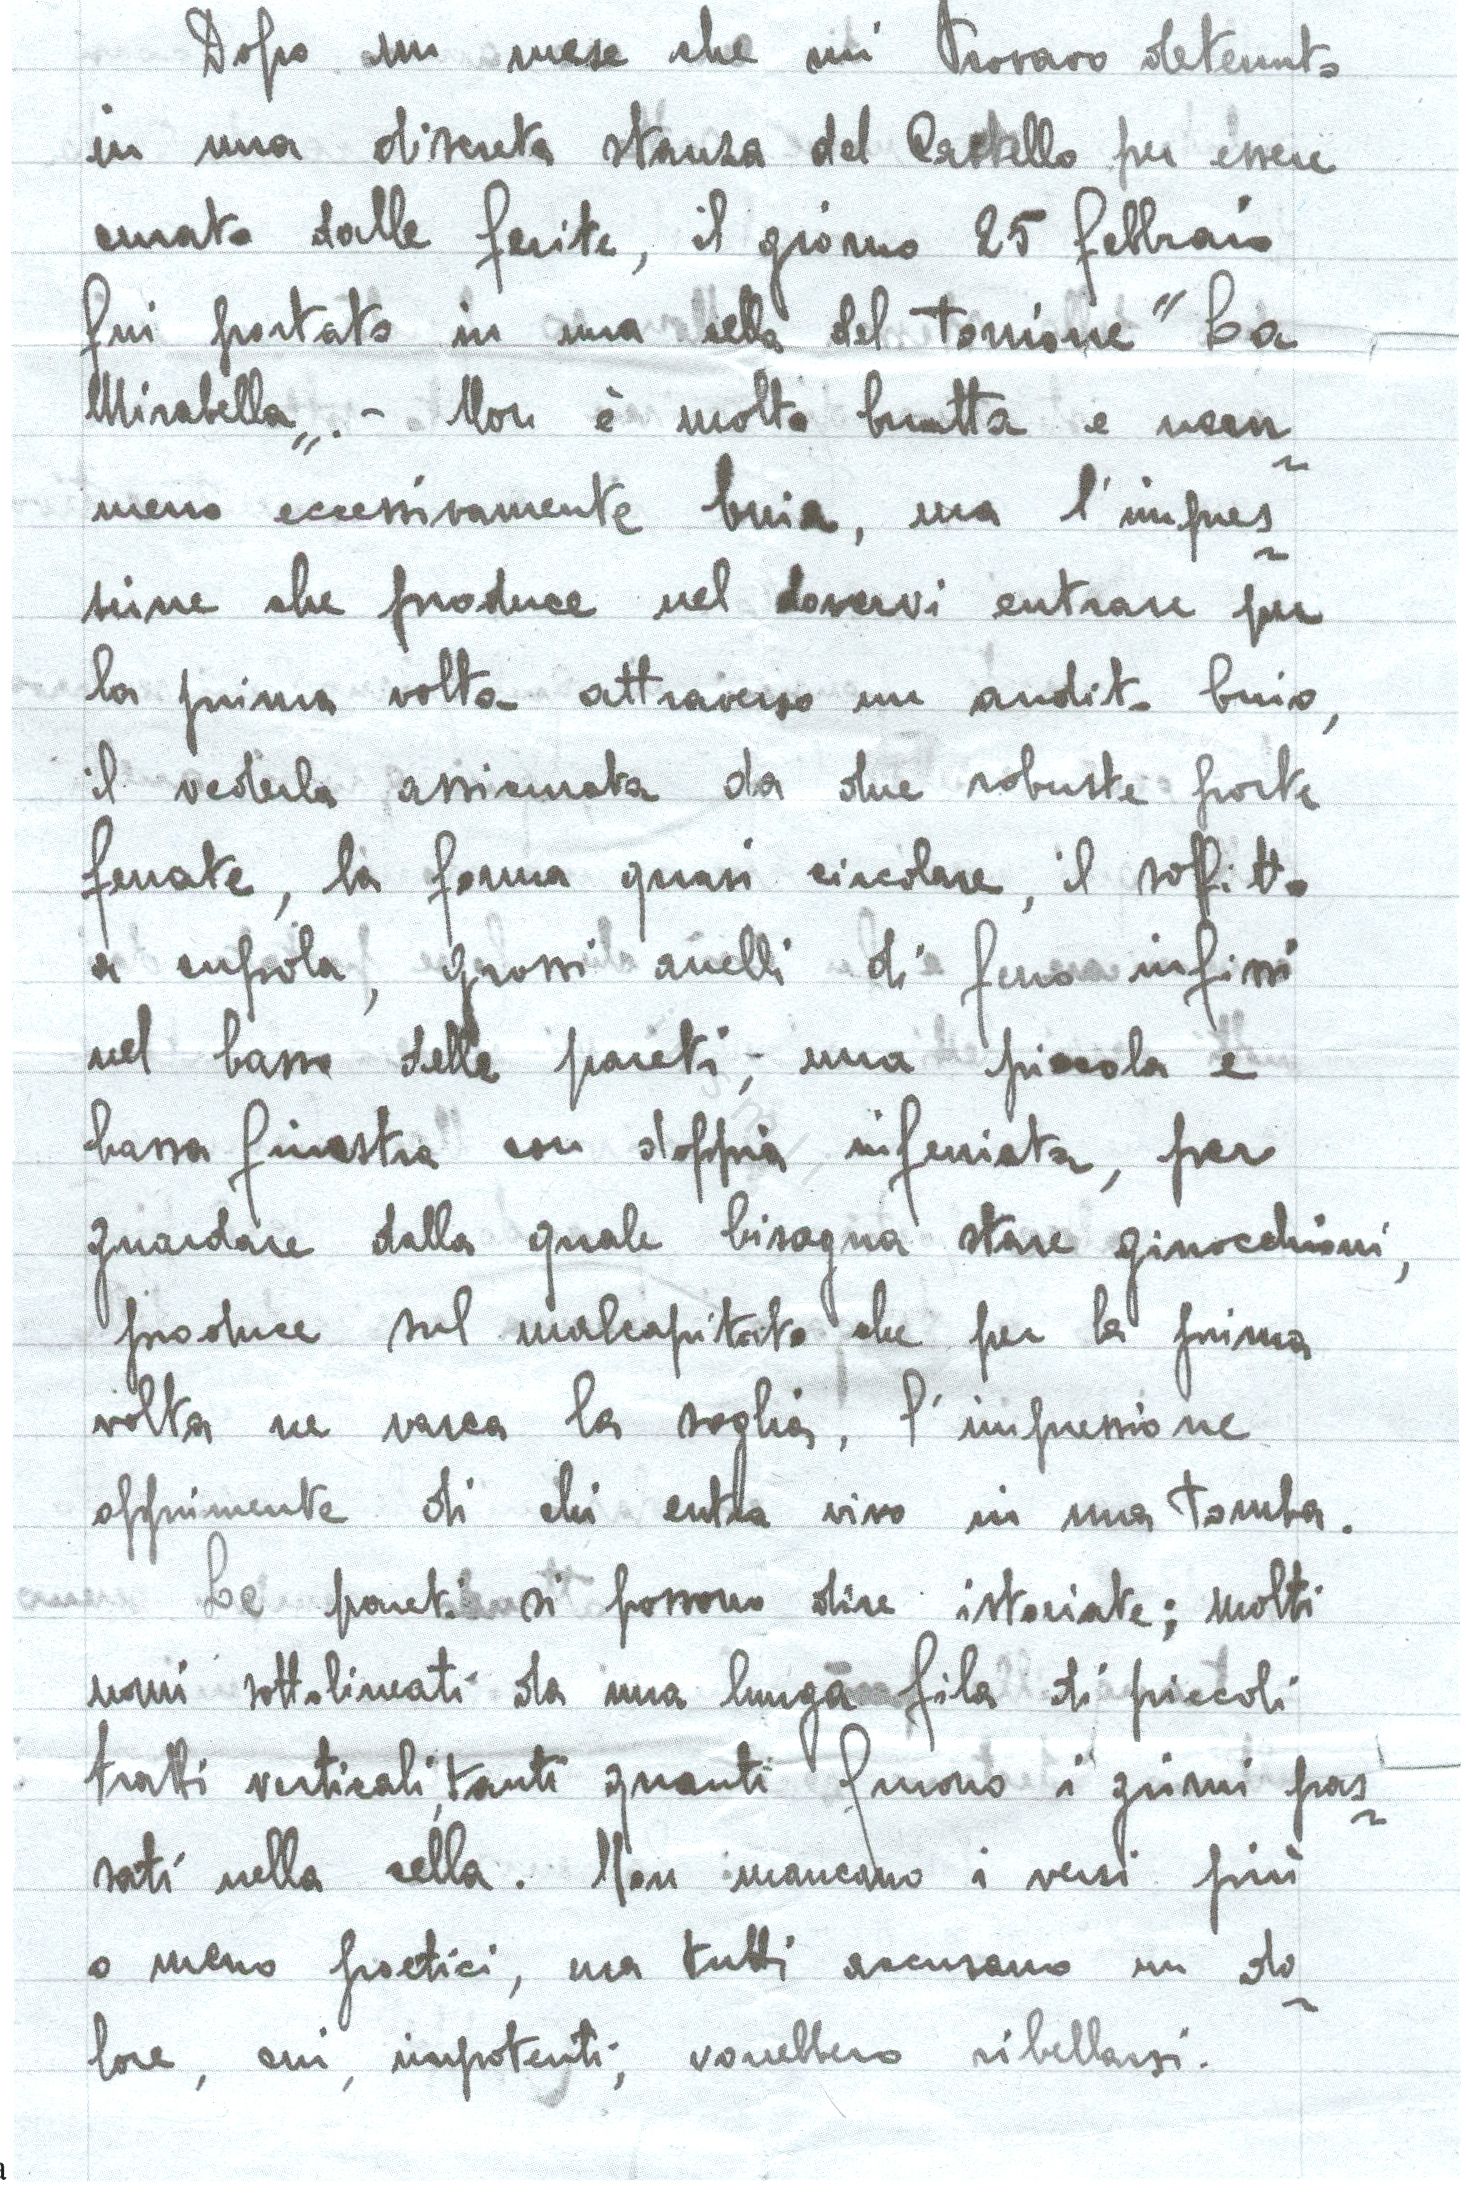 Dopo un mese che mi trovavo detenuto
in una discreta stanza del Castello per essere
curato dalle ferite, il giorno 25 febbraio
fui portato in una cella del torrione "La
Mirabella". - Non è molto brutta e nean
meno eccessivamente buia, ma l'impres
sione che produce nel dovervi entrare per
la prima volta attraverso un andito buio,
il vederla assicurata da due robuste porte
ferrate, la forma quasi circolare, il soffitto
a cupola, grossi anelli di ferro infissi
nel basso delle pareti, - una piccola e
bassa finestra con doppia inferriata, per
guardare dalla quale bisogna stare ginocchioni,
produce sul malcapitato che per la prima
volta ne varca la soglia, l'impressione
opprimente di chi entra vivo in una tomba.
Le pareti si possono dire istoriate; molti
nomi sottolineati da una lunga fila di piccoli
tratti verticali, tanti quanti furono i giorni pas
sati nella cella. Non mancano i versi più
o meno poetici, ma tutti accusano un do
lore, cui, impotenti, vorrebbero ribellarsi.
a